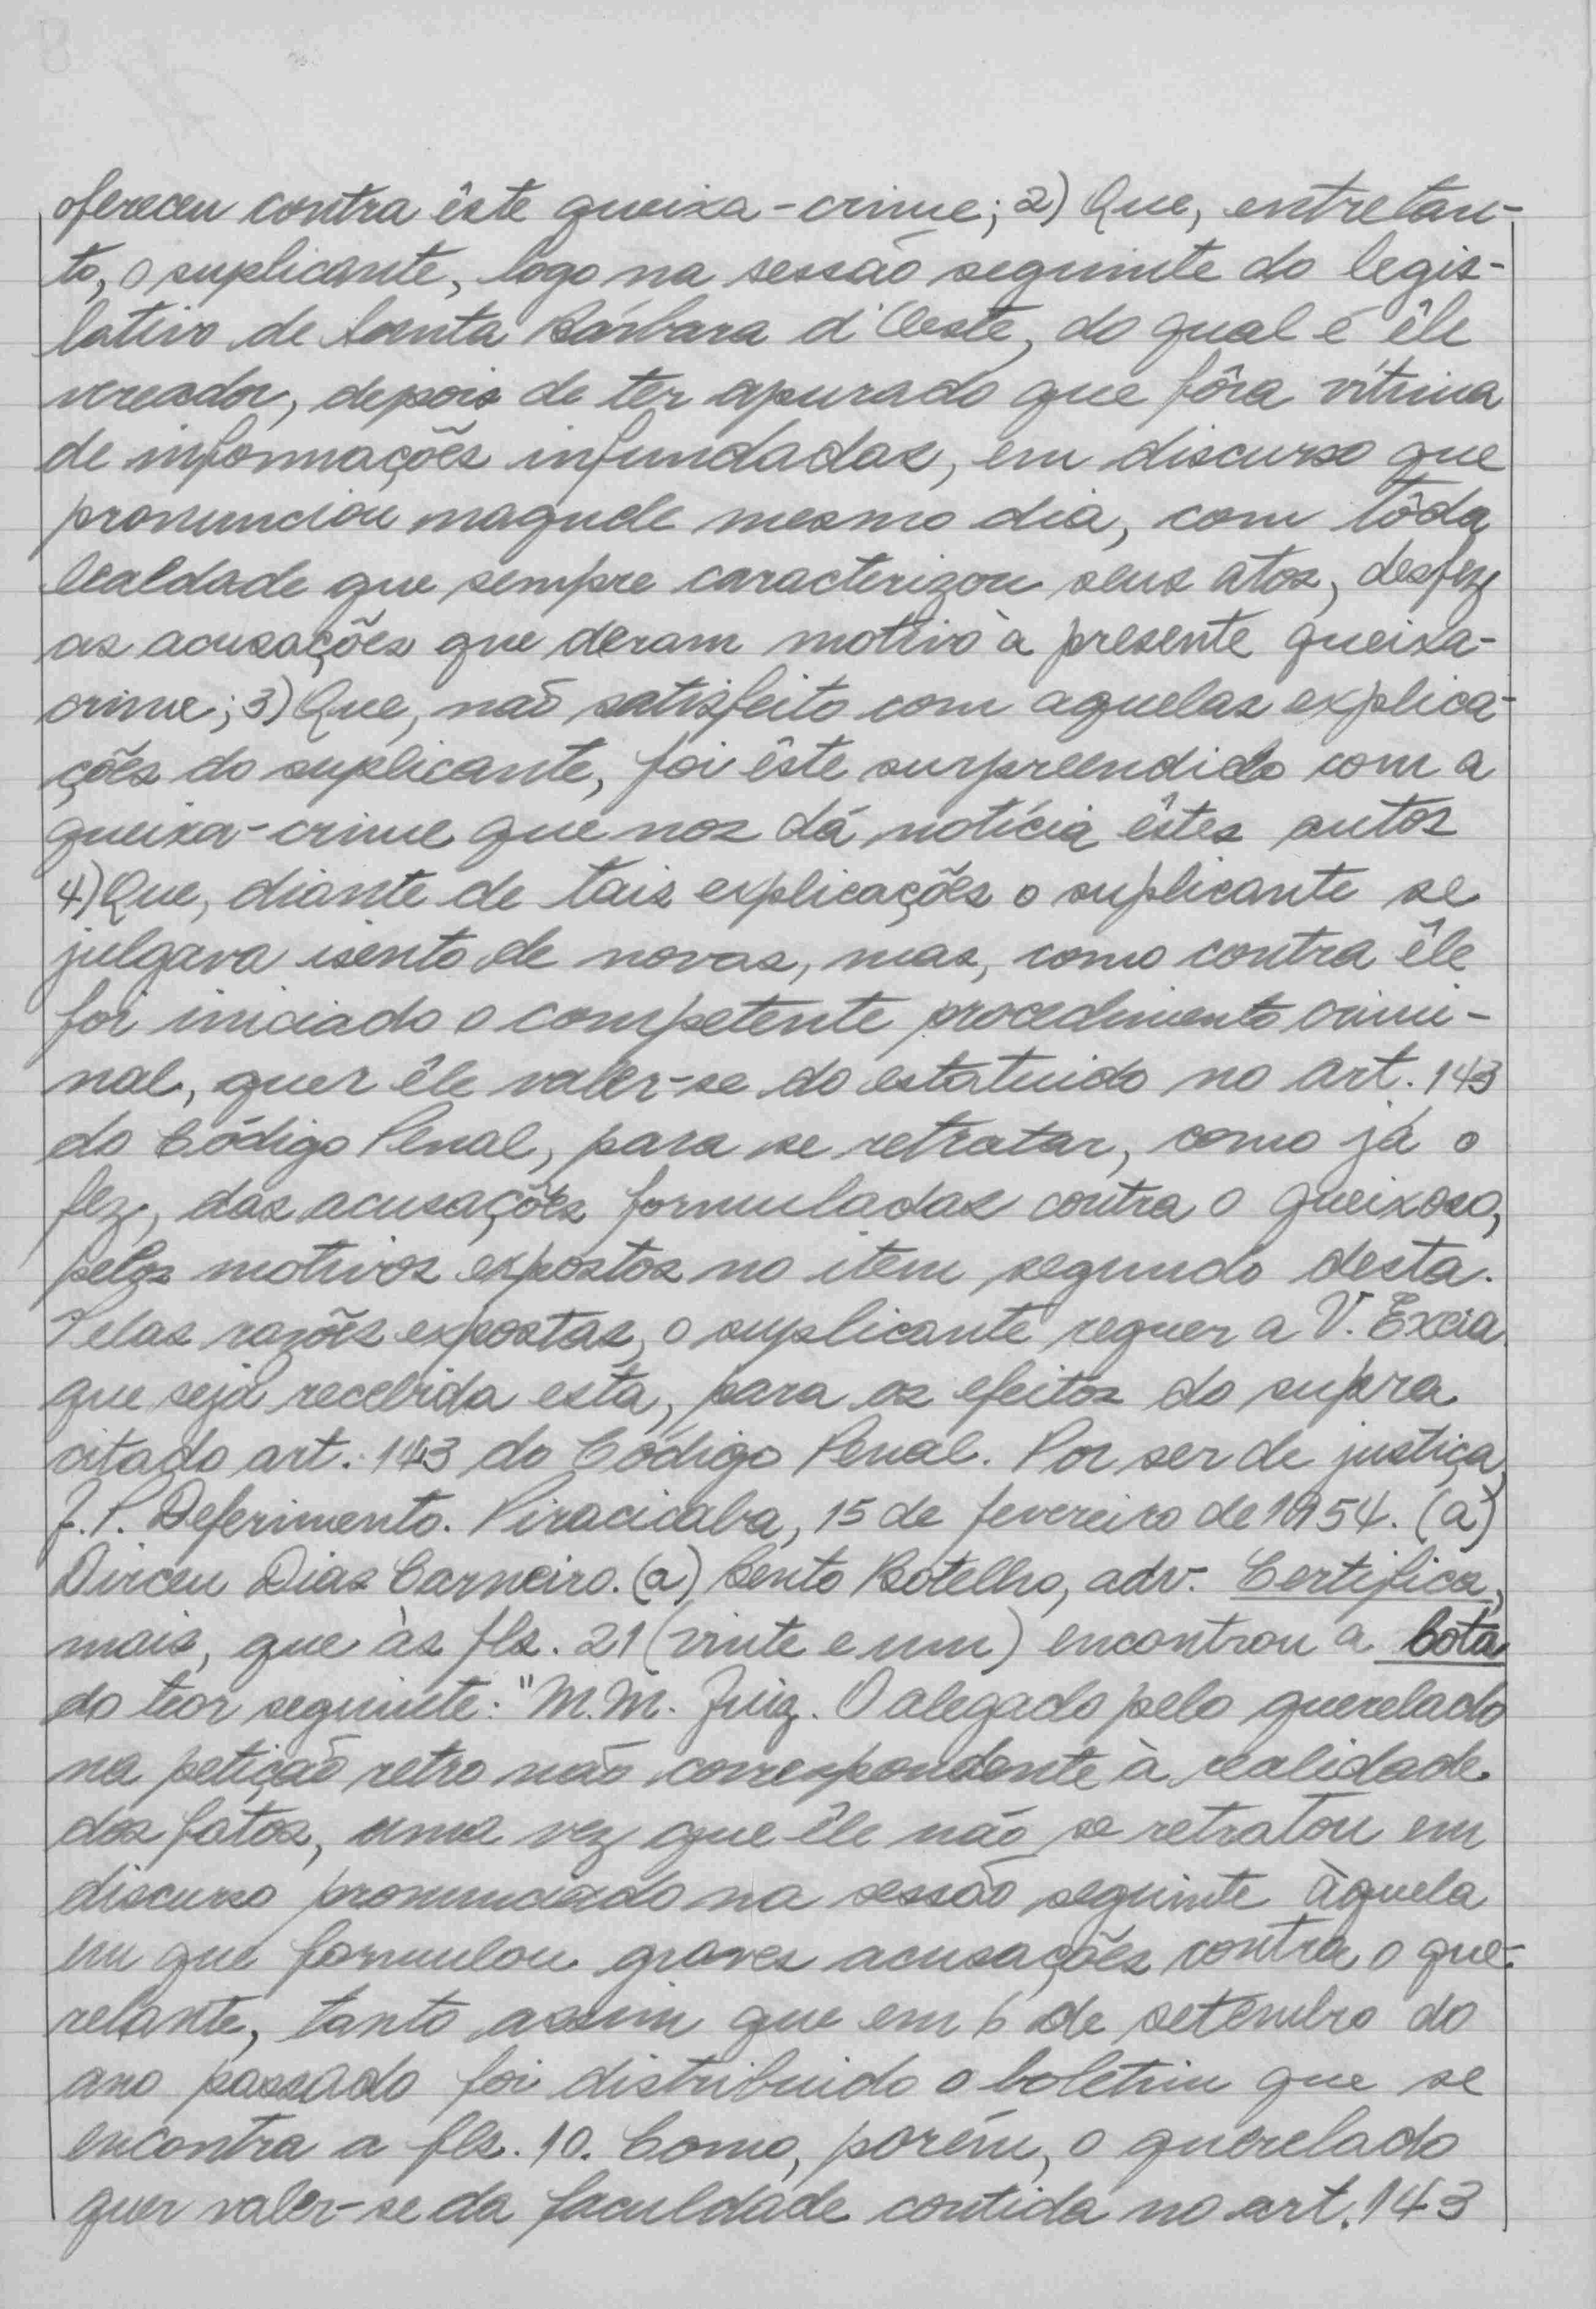 ofereceu contra êste queixa-crime; 2) Que, entretan-
to, o suplicante, logo na sessão seguinte do legis-
lativo de Santa Bárbara d'Oeste, do qual é êle
vereador, depois de ter apurado que fôra vítima
de informações infundadas, em discurso que
pronunciou naquele mesmo dia, com tôda
lealdade que sempre caracterizou seus atos, desfez
as acusações que deram motivo à presente queixa-
crime; 3) Que, não satisfeito com aquelas explica-
ções do suplicante, foi êste surpreendido com a
queixa-crime que nos dá notícia êstes autos
4) Que, diante de tais explicações o suplicante se
julgava isento de novas, mas, como contra êle
foi iniciado o competente procedimento crimi-
nal, quer êle valer-se do estatuido no art. 143
do Código Penal, para se retratar, como já o
fez, das acusações formuladas contra o queixoso,
pelos motivos expostos no item segundo desta.
Pelas razões expostas, o suplicante requer a V. Excia
que seja recebida esta, para os efeitos do supra
citado art. 143 do Código Penal. Por ser de justiça,
J. P. Deferimento. Piracicaba, 15 de fevereiro de 1954. (a)
Dirceu Dias Carneiro. (a) Bento Botelho, adv. Certifica,
mais, que às fls. 21 (vinte e um) encontrou a Cota
do teor seguinte: "M.M. Juiz. O alegado pelo querelado
na petição retro não correspondente à realidade
dos fatos, uma vez que êle não se retratou em
discurso pronunciado na sessão seguinte àquela
em que formulou graves acusações contra o que-
relante, tanto assim que em 6 de setembro do
ano passado foi distribuido o boletim que se
encontra a fls. 10. Como, porém, o querelado
quer valer-se da faculdade contida no art. 143